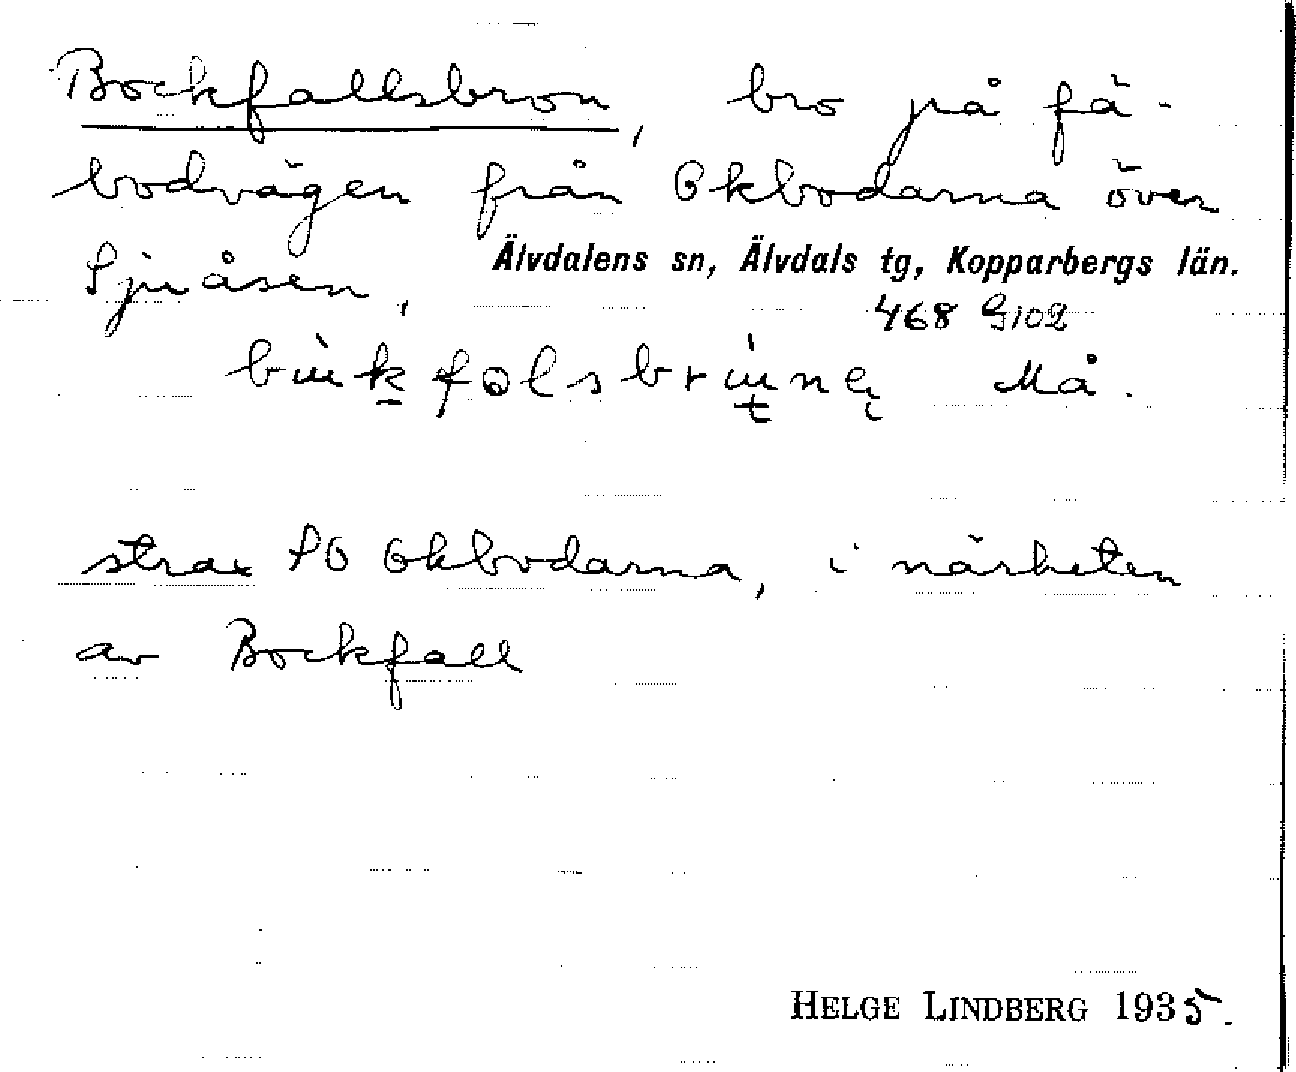 Bockfallsbron, bro på fä-
bodvägen från Okbodarna över
Sjuåsen.
Älvdalens sn, Älvdals tg, Kopparbergs län.
468 G102
Må.
strax SO Okbodarna, i närheten
av Bockfall
HELGE LINDBERG 1935.